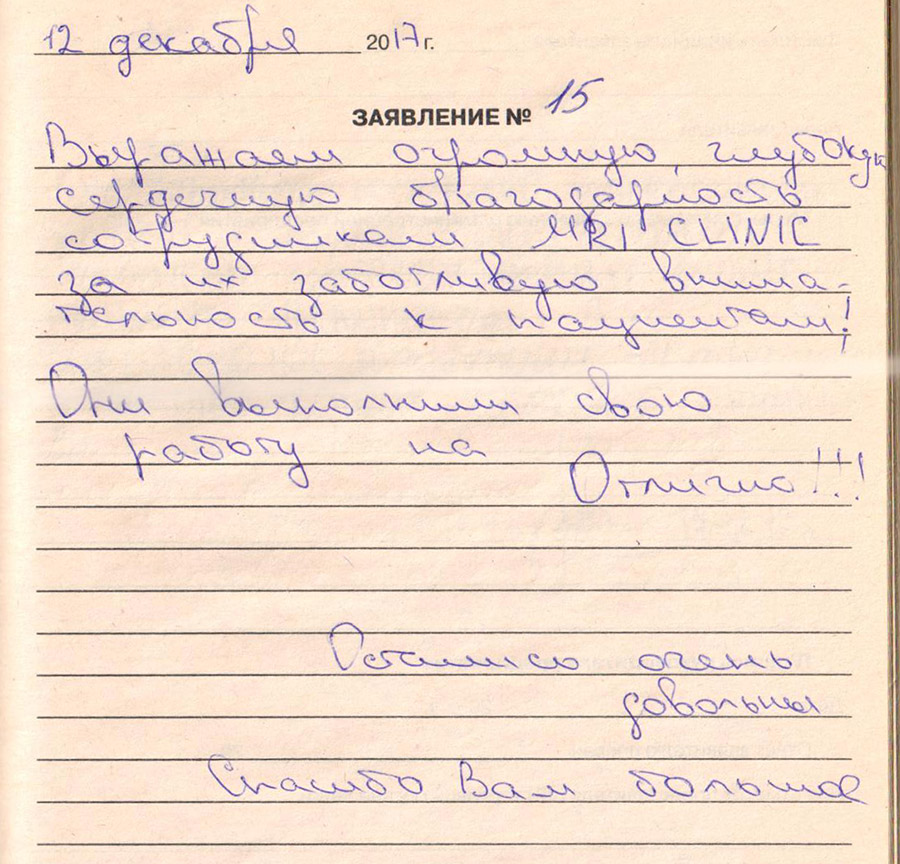 12 декабря 2017 г.
ЗАЯВЛЕНИЕ № 15
Выражаем огромную, глубокую
сердечную благодарность
сотрудникам MRI CLINIC
за их заботливую внима-
тельность к пациентам!
Они выполнили свою
работу на
Отлично!!!
Остались очень
довольны
Спасибо Вам большое